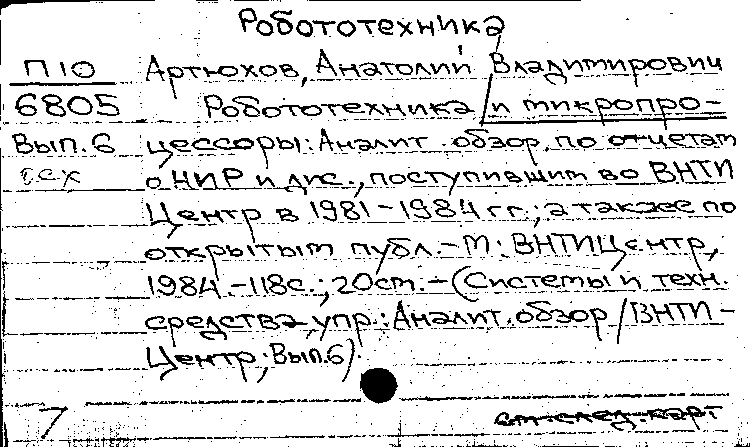 Робототехника
П10 Артюхов, Анатолий Владимирович
6805 Робототехника и микропро-
Вып.6 цессоры: Аналит. обзор. по отчетам
о НИР и дис., поступившим во ВНТИ
Центр в 1981-1984 гг.; а также по
открытым публ.-М: ВНТИЦентр,
1984.-118с.; 20см.-(Системы и техн.
средства упр.: Аналит. обзор / ВНТИ-
Центр; Вып.6)
см-след-карт
7